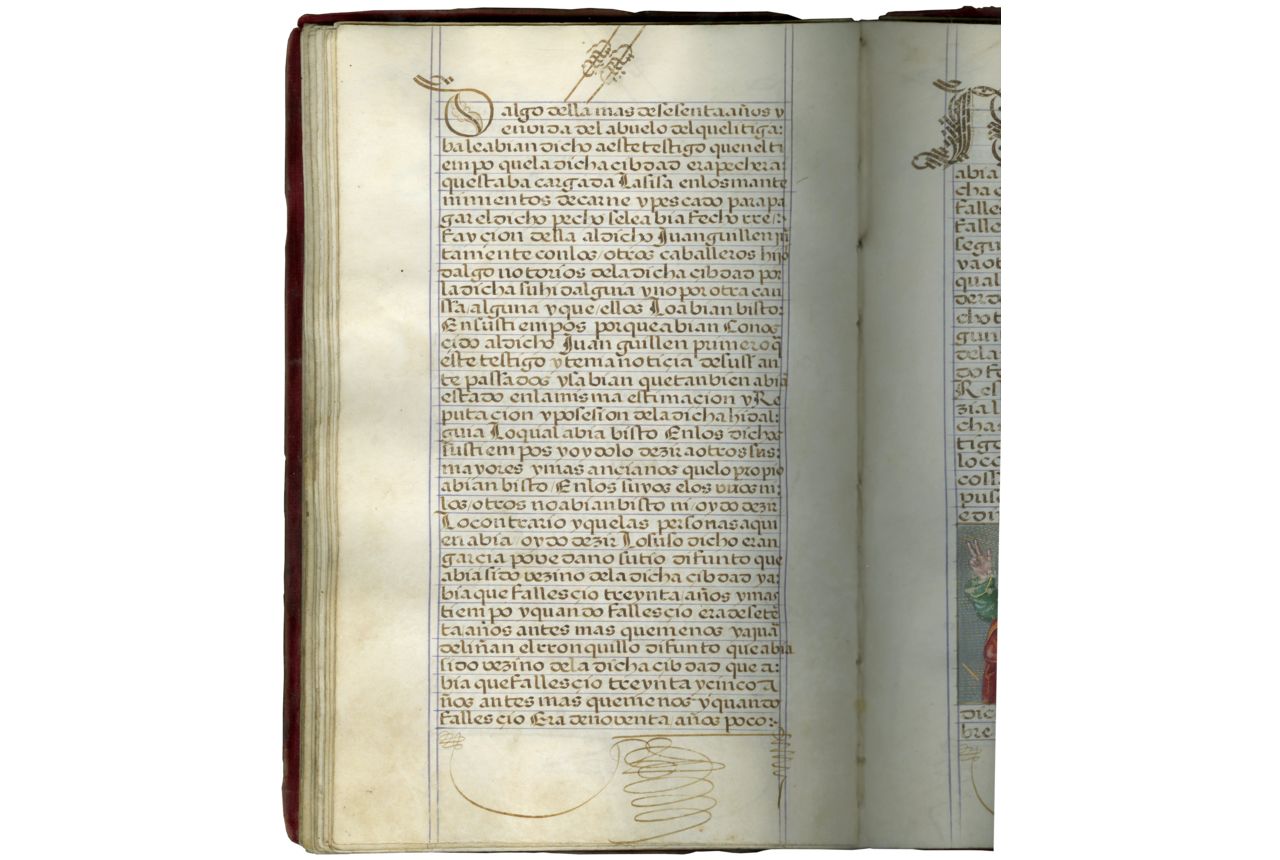 O algo della mas de sesenta años y
en vida del abuelo del que litiga:
ba le abian dicho a este testigo que en el ti
empo que la dicha cibdad era pechera:
questaba cargada La sisa en los mante
nimientos de carne y pescado para pa
gar el dicho pecho se le abia fecho rre:
faycion della al dicho Juan guillen jū
tamente con los/otros caballeros hijo
dalgo notorios de la dicha cibdad por
la dicha su hidalguia y no por otra cau
ssa/alguna y que/ellos Lo abian bisto:
En sus tiempos porque abian Conos
cido al dicho Juan guillen primero q̄
este testigo y tenia noticia de suss an
te passados y sabian que tanbien abiā
estado en la misma estimacion y Re
putacion y posesion de la dicha hidal:
guia Lo qual abia bisto En los dichos
sus tiempos y oydolo dezir a otros sus:
mayores y mas ancianos que lo propio
abian bisto/En los suyos e los unos ni:
los/otros no abian bisto ni/oydo dezir
Lo contrario y que las personas a qui
en abia oydo dezir Lo suso dicho eran
garcia pobedano su tio difunto que
abia sido vezino de la dicha cibdad y a:
bia que fallescio treynta/años y mas
tiempo y quando fallescio era de setē
ta años antes mas que menos y a juā
de liñan el rronquillo difunto que abia
sido vezino de la dicha cibdad que a:
bia que fallescio treynta y cinco a
ños antes mas que menos y quando
fallescio Era de noventa/años poco:
abia
cha c
falles
falle
segu
ya ot
qual
der d
cho t
gun
de la
do fe
Res
zia l
chas
tigo
lo co
coss
pus
e di
dic
bre